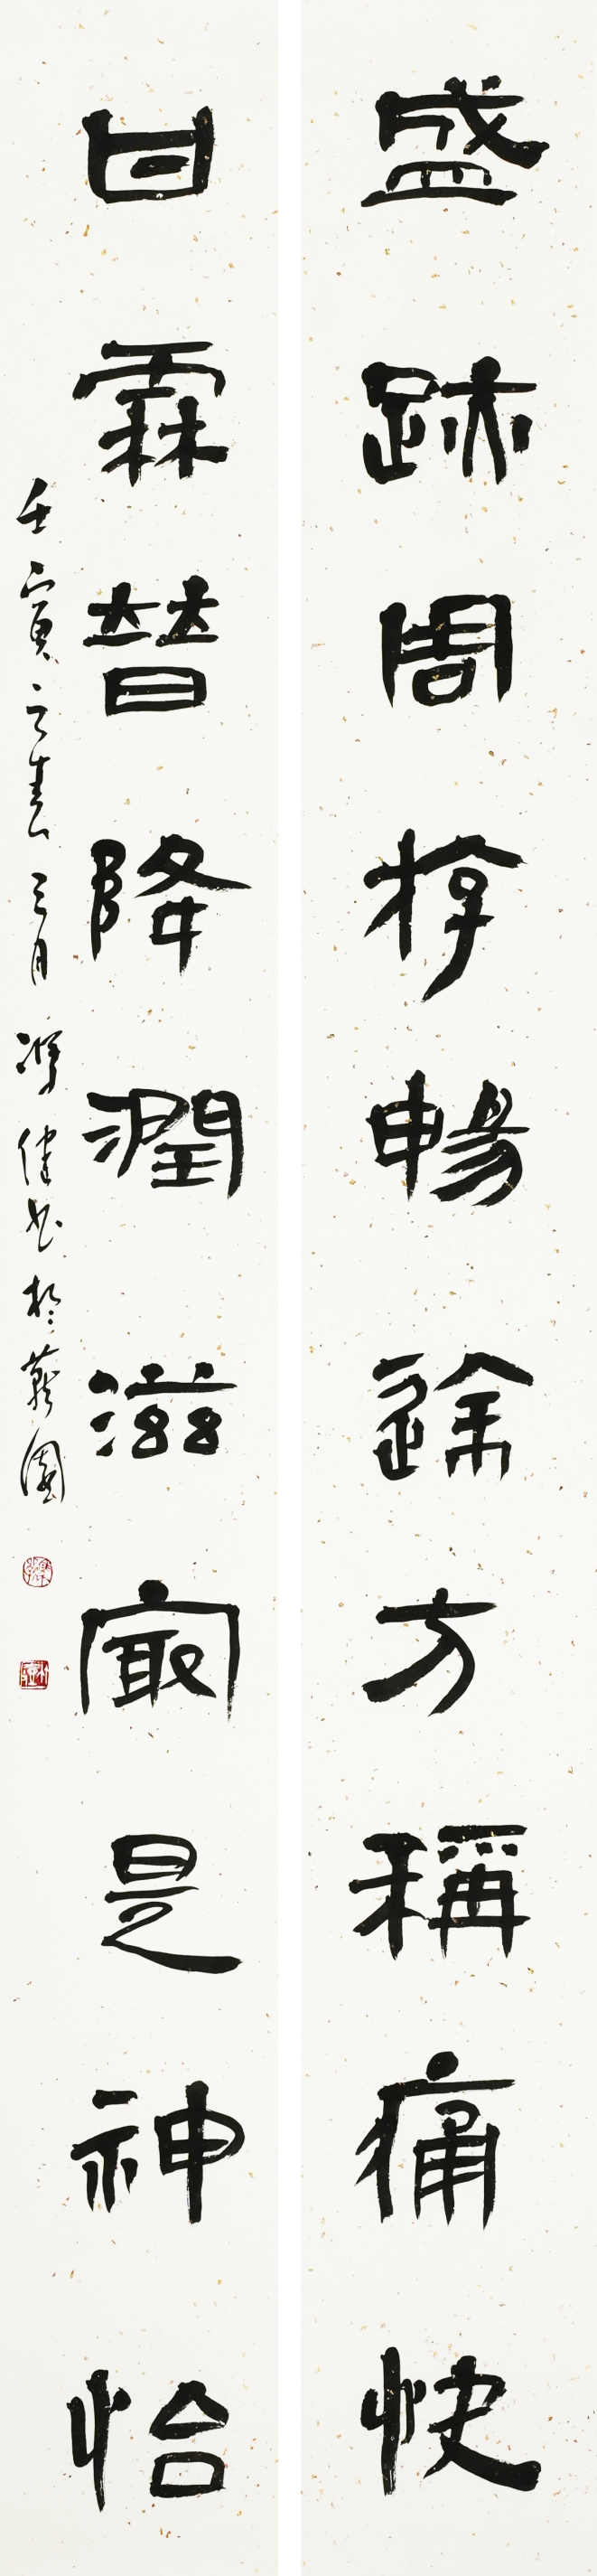 盛跡周游暢途方稱痛快
甘霖普降潤滋寂是神怡
壬寅之春三月馮健書於藝園